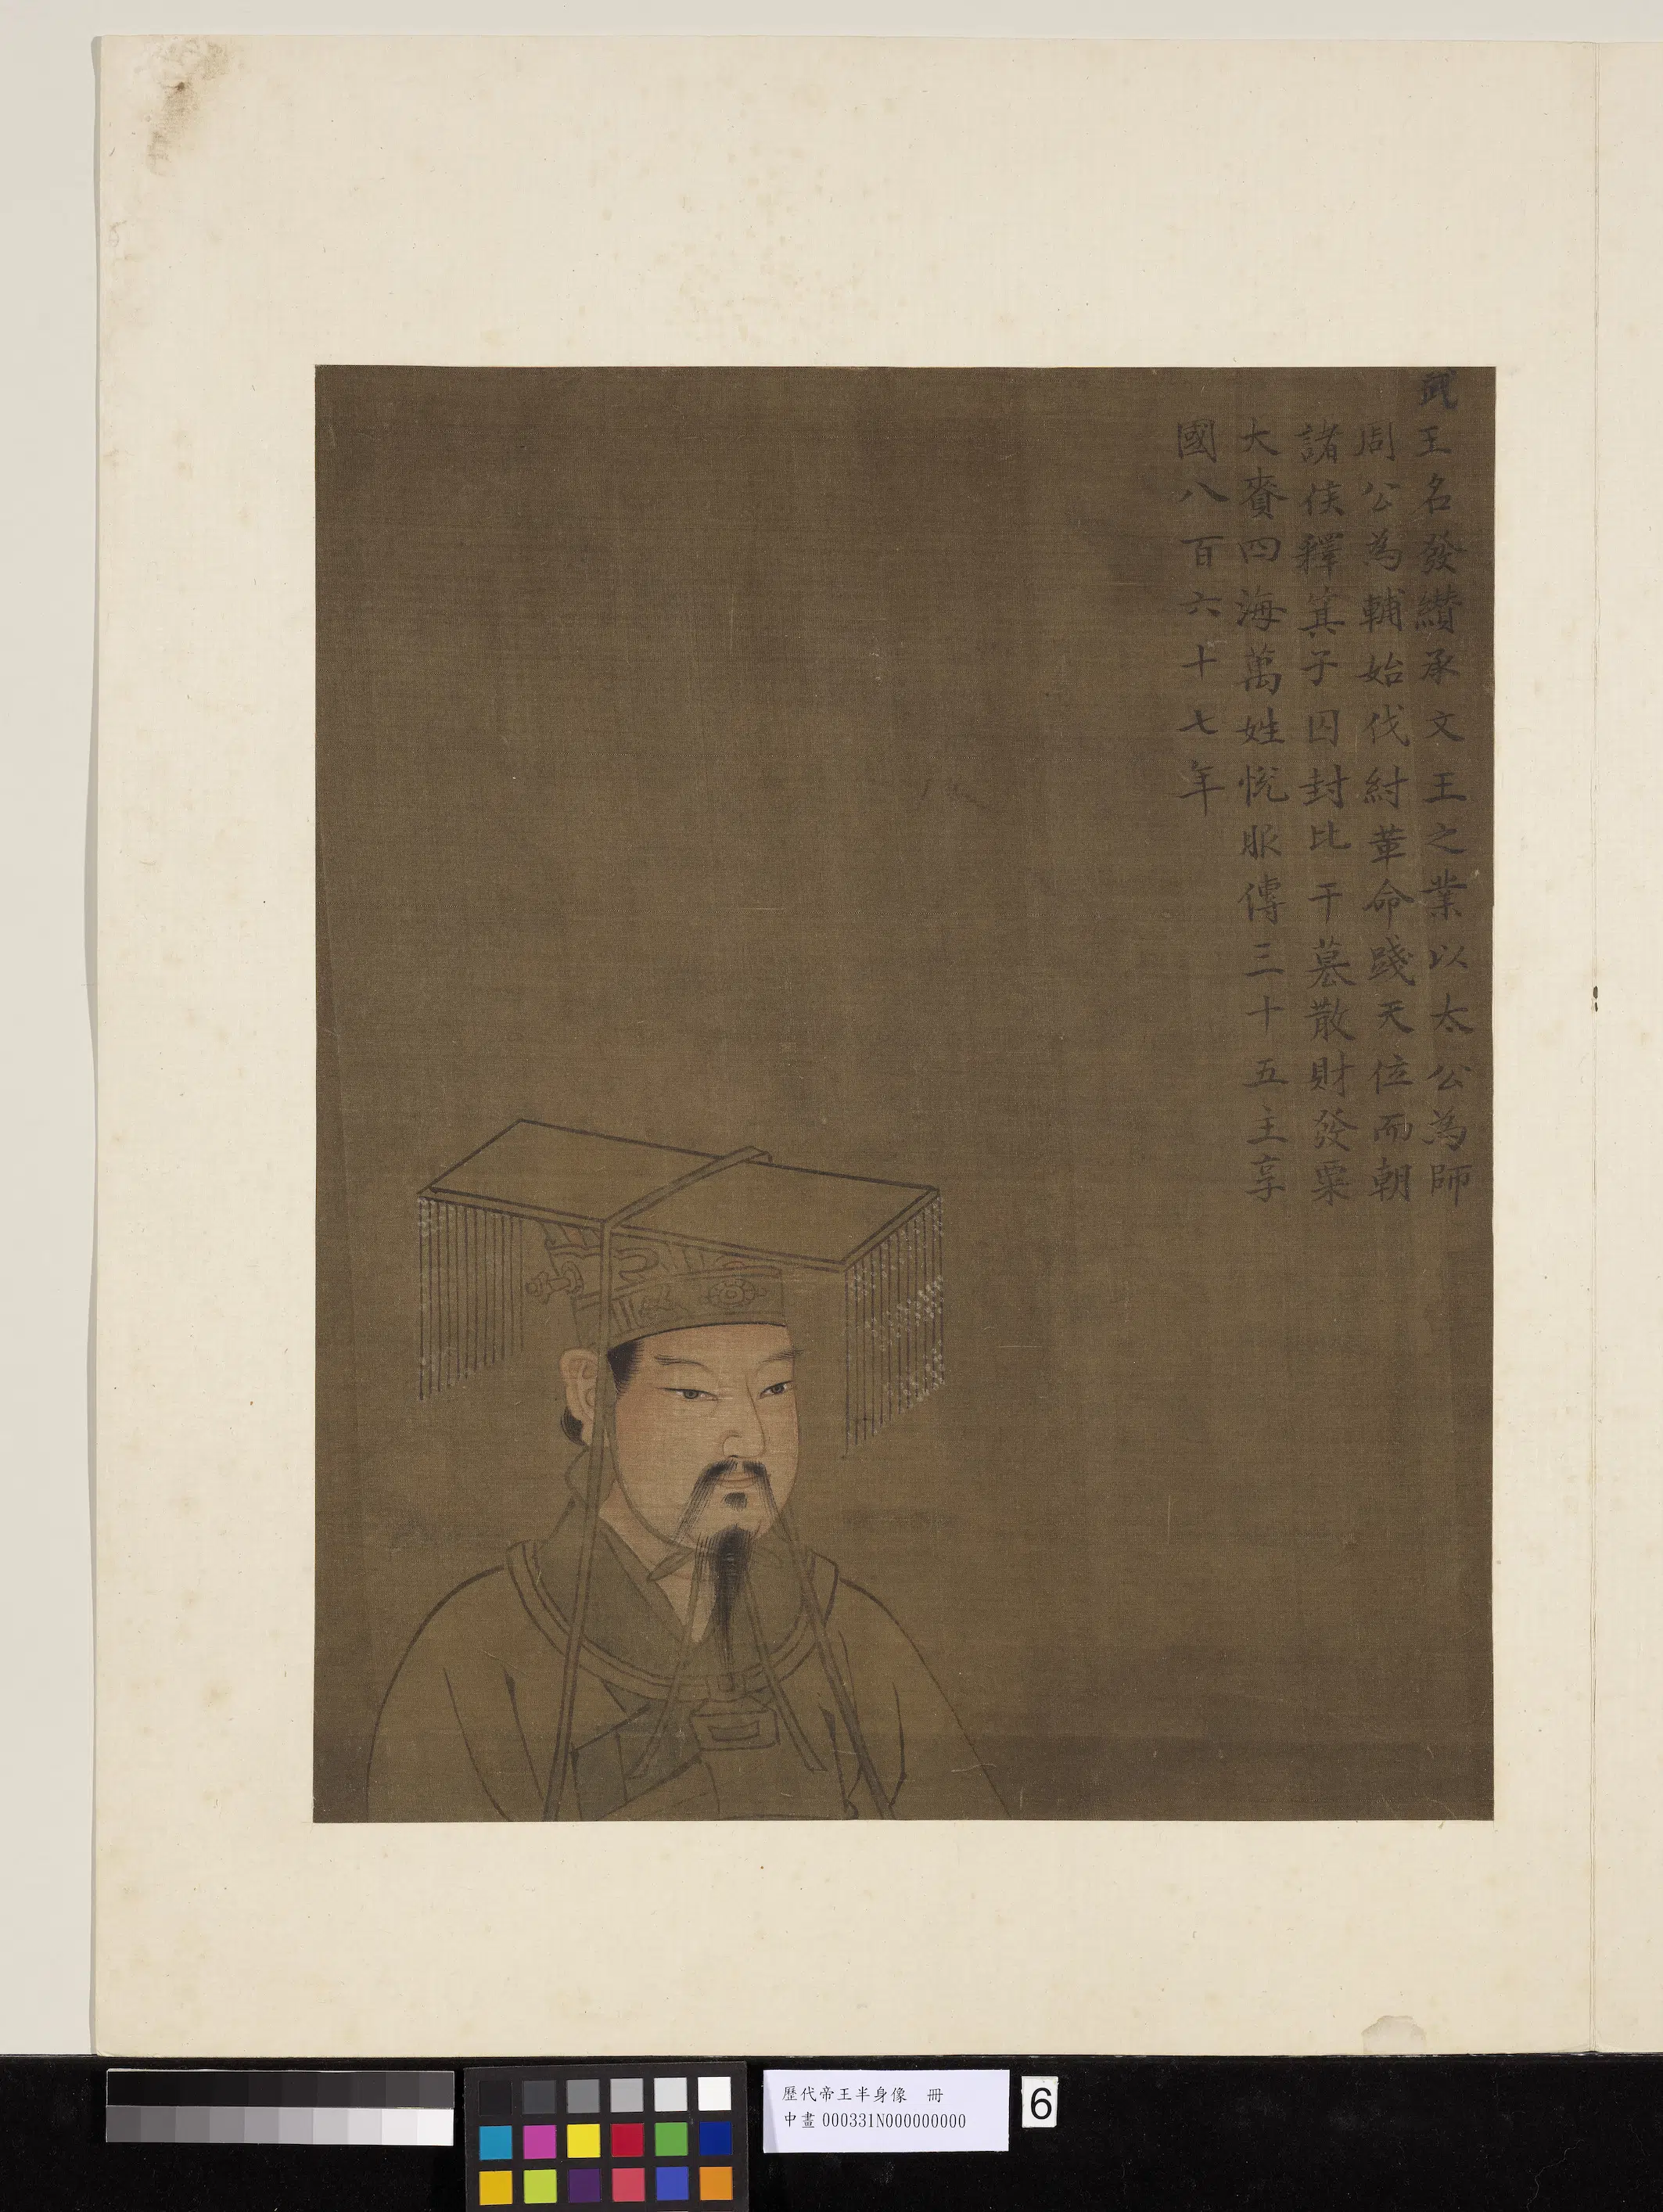 武王名發纘承文王之業以太公為師
周公為輔始伐紂革命踐天位而朝
諸侯釋箕子囚封比干墓散財發粟
大賚四海萬姓悅服傳三十五主享
國八百六十七年
歷代帝王半身像　冊
中畫000331N000000000
6